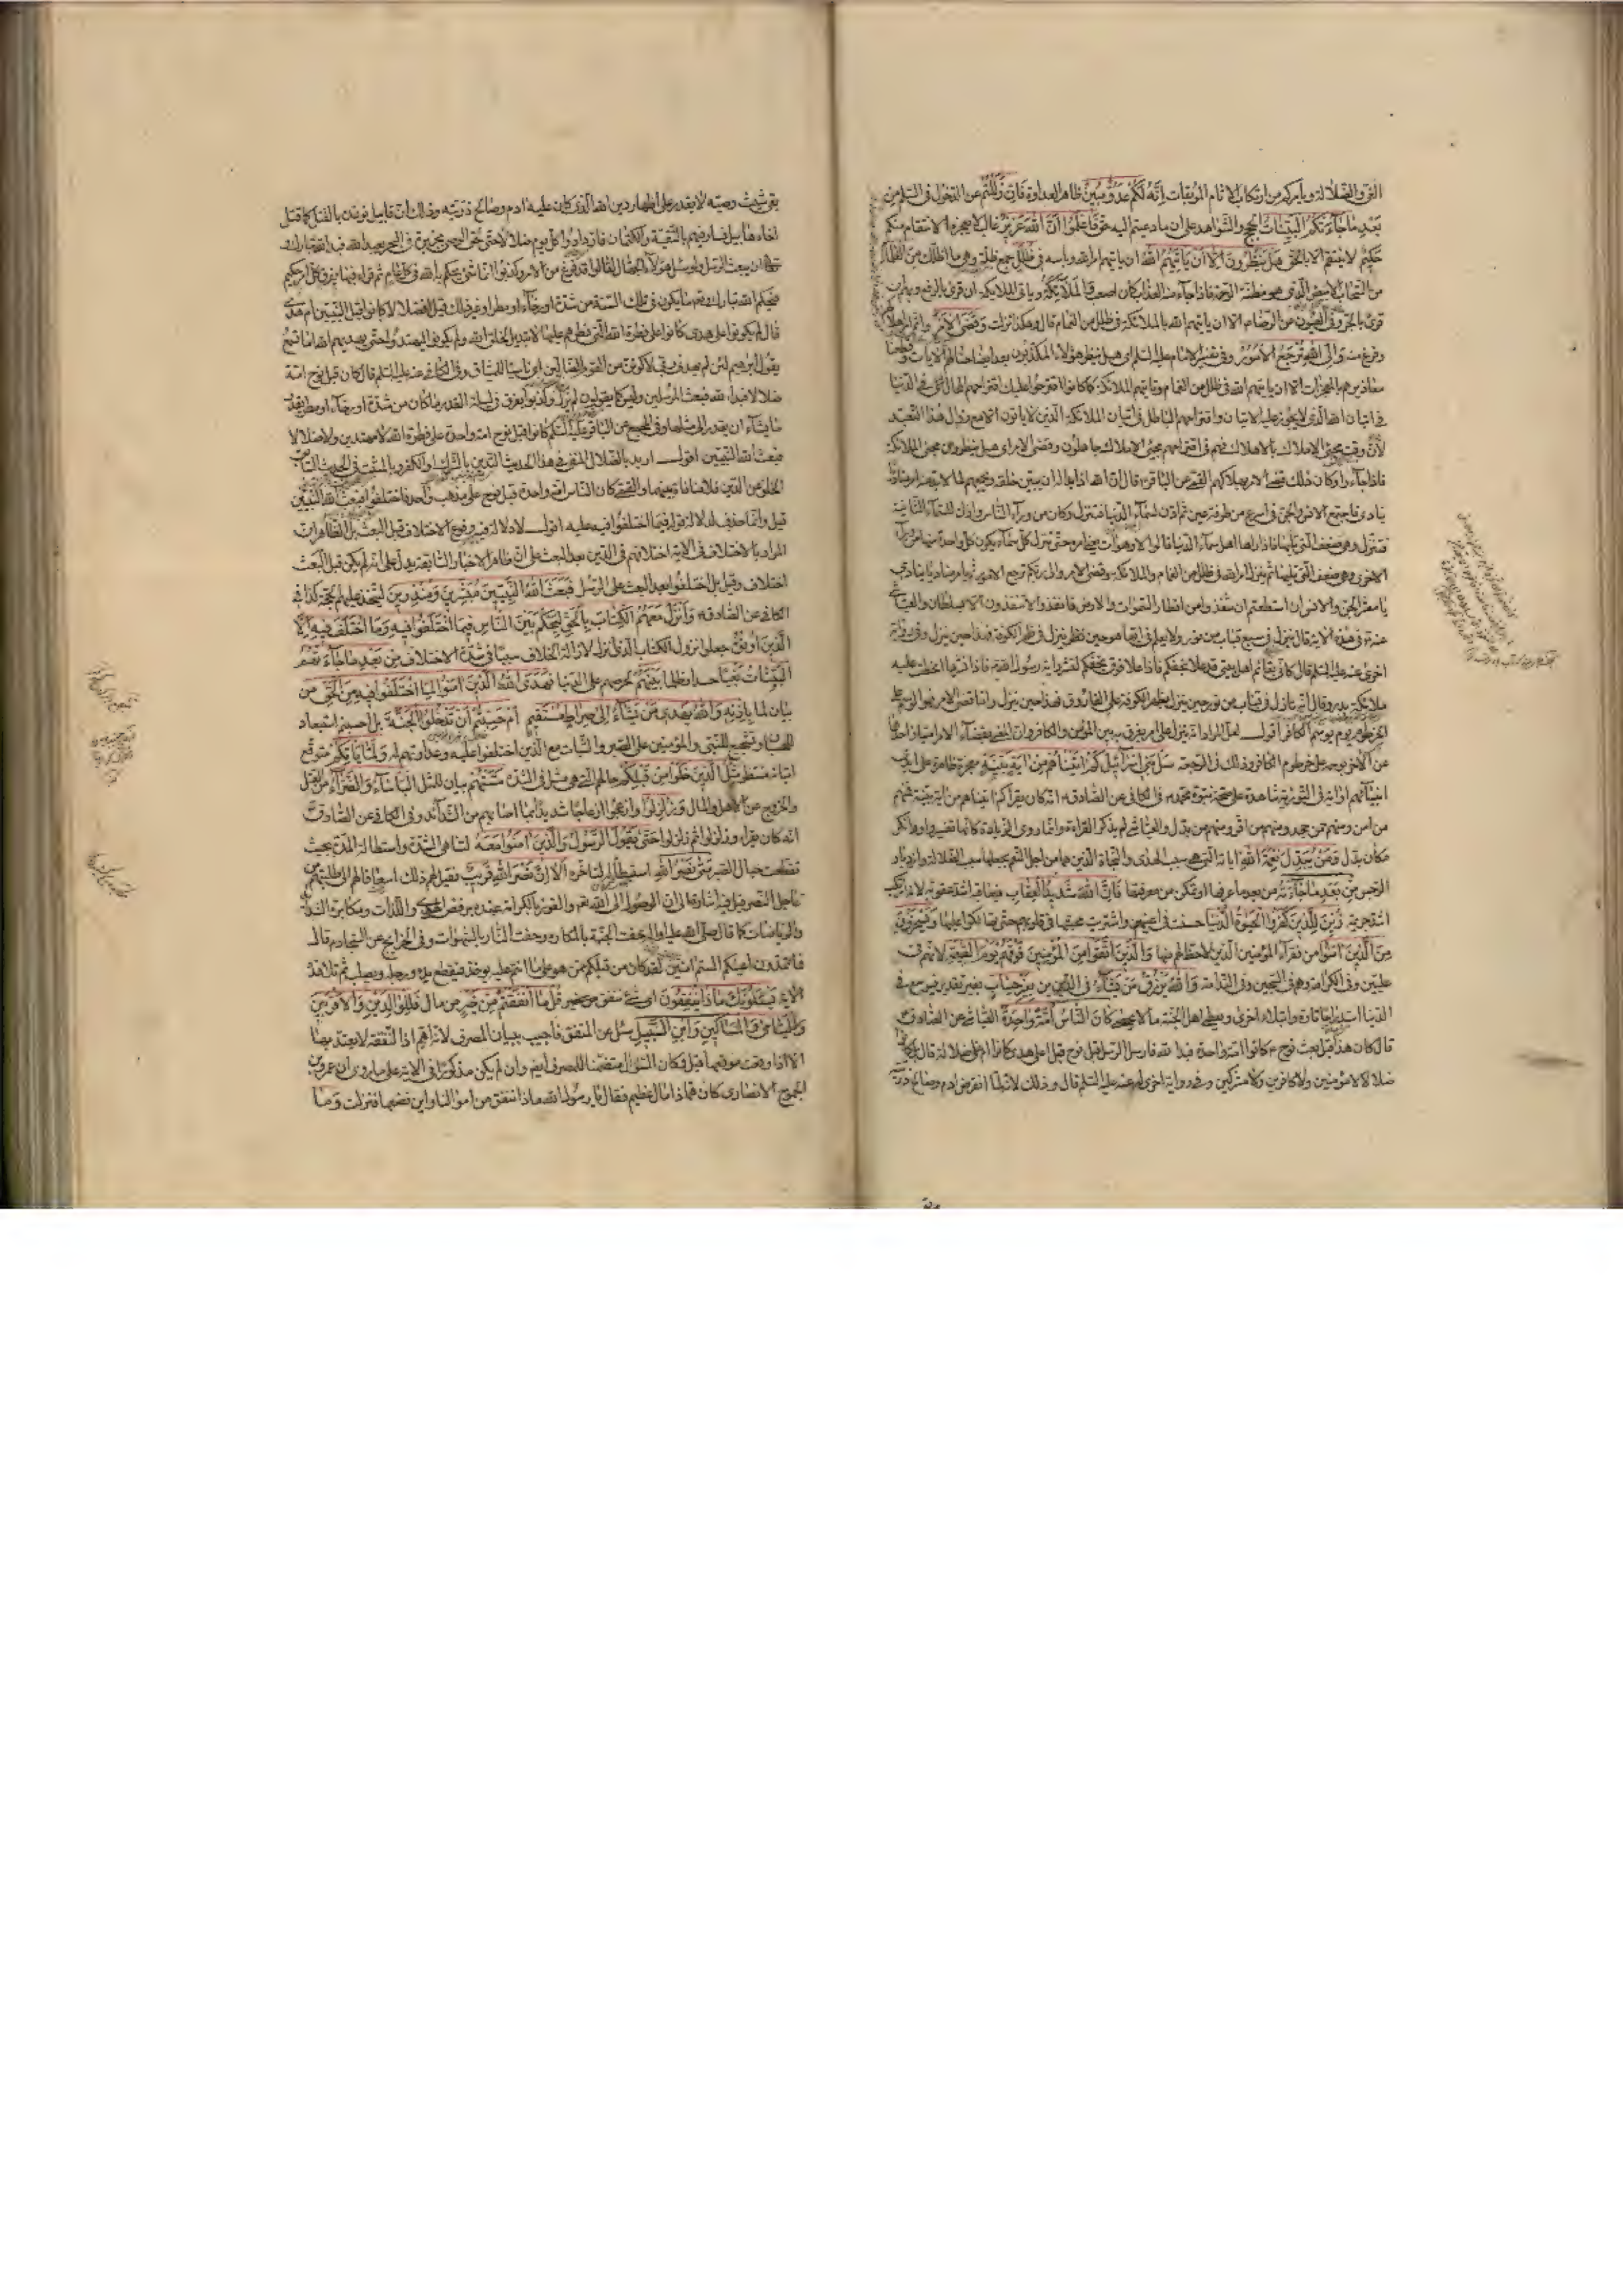 الفرق والضلالة ويأمركم من ارتكاب الاثام الموبقات إِنَّهُ لَكُمْ عَدُوٌّ مُبِينٌ ظاهر العداوة فَإِنْ زَلَلْتُمْ عن الدخول في السلم مِنْ
بَعْدِ مَا جَاءَتْكُمُ الْبَيِّنَاتُ الحجج والشواهد على ان ما دعيتم اليه حق فَاعْلَمُوا أَنَّ اللهَ عَزِيزٌ غالب لا يعجزه الانتقام منكم
حَكِيمٌ لا ينتقم الا بالحق هَلْ يَنْظُرُونَ إِلَّا أَنْ يَأْتِيَهُمُ اللهُ اي ياتيهم امر الله وباسه فِي ظُلَلٍ جمع ظلة وهي ما اظلك مِنَ
من السحاب الابيض الذي هو مظنة الرحمة فاذا جاء منه العذاب كان اصعب وَالْمَلَائِكَةُ وياتي الملائكة ان قرئ بالرفع
قرئ بالجر وفي العيون عن الرضا الا ان ياتيهم الله بالملائكة في ظلل من الغمام قال وهكذا نزلت وَقُضِيَ الْأَمْرُ واتم امر اهلاكهم
وفرغ منه وَإِلَى اللهِ تُرْجَعُ الْأُمُورُ وفي تفسير الامام عليه السلم اي هل ينظر هؤلاء المكذبون بعد ايضاحنا لهم الايات وقطعنا
معاذيرهم بالمعجزات الا ان ياتيهم الله في ظلل من الغمام وتاتيهم الملائكة كما كانوا اقترحوا عليك اقتراحهم المحال في الدنيا
في اتيان الله الذي لا يجوز عليه الاتيان واقتراحهم الباطل في اتيان الملائكة الذين لا ياتون الا مع زوال هذا التعبد
لان وقت مجيئ الاملاك بالاهلاك فهم في اقتراحهم مجيئ الاملاك جاهلون وقضي الامر اي هل ينظرون مجيئ الملائكة
فاذا جاءوا وكان ذلك قضي الامر بهلاكهم القمي عن الباقر قال ان الله اذا بدا له ان يبين خلقه ويجمعهم لما لا بد منه امر مناديا
ينادي فاجتمع الانس والجن في اسرع من طرفة عين ثم اذن لسماء الدنيا فتنزل وكان من وراء الناس واذن للسماء الثانية
فتنزل وهي ضعف التي تليها فاذا راها اهل سماء الدنيا قالوا جاء ربنا قالوا لا وهو آت يعني امره حتى تنزل كل سماء يكون كل واحدة منها من وراء
الاخرى وهي ضعف التي تليها ثم ينزل امر الله في ظلل من الغمام والملائكة وقضي الامر والى ربكم ترجع الامور ثم يامر مناديا ينادي
يا معشر الجن والانس ان استطعتم ان تنفذوا من اقطار السموات والارض فانفذوا لا تنفذون الا بسلطان والعياشي
عنه في هذه الاية قال ينزل في سبع قباب من نور ولا يعلم في ايها هو حين ينزل في ظهر الكوفة فهذا حين ينزل وفي رواية
اخرى عنه عليه السلم قال كاني بقائم اهل بيتي قد علا نجفكم فاذا علا فوق نجفكم نشر راية رسول الله فاذا نشرها انحط عليه
ملائكة بدر وقال انه نازل في قباب من نور حين ينزل بظهر الكوفة على الفاروق فهذا حين ينزل واما قضي الامر فهو الوسم على
الخرطوم يوم يوسم الكافر اقول لعل المراد انه ينزل على امر يفرق به بين المؤمن والكافر وان المعني بقضاء الامر امتياز احدهما
عن الاخر بوسمه على خرطوم الكافر وذلك في الرجعة سَلْ بَنِي إِسْرَائِيلَ كَمْ آتَيْنَاهُمْ مِنْ آيَةٍ بَيِّنَةٍ معجزة ظاهرة على ايدي
انبيائهم او اية في التورية شاهدة على صحة نبوة محمد في الكافي عن الصادق انه كان يقرأ كم اتيناهم من اية بينة فمنهم
من امن ومنهم من جحد ومنهم من اقر ومنهم من بدل والعياشي لم يذكر القراءة وانما روى الزيادة كانها تفسير او انكر
مكان بدل وَمَنْ يُبَدِّلْ نِعْمَةَ اللهِ اياته التي هي سبب الهدى والنجاة الذين هما من اجل النعم بجعلها سبب الضلالة وازدياد
الرجس مِنْ بَعْدِ مَا جَاءَتْهُ من بعد ما عرفها او تمكن من معرفتها فَإِنَّ اللهَ شَدِيدُ الْعِقَابِ فيعاقبه اشد عقوبة لانه ارتكب
اشد جريمة زُيِّنَ لِلَّذِينَ كَفَرُوا الْحَيَوةُ الدُّنْيَا حسنت في اعينهم واشربت محبتها في قلوبهم حتى تهالكوا عليها وَيَسْخَرُونَ
مِنَ الَّذِينَ آمَنُوا من فقراء المؤمنين الذين لا حظ لهم منها وَالَّذِينَ اتَّقَوْا من المؤمنين فَوْقَهُمْ يَوْمَ الْقِيَمَةِ لانهم في
عليين وفي الكرامة وهم في السجين وفي الندامة وَاللهُ يَرْزُقُ مَنْ يَشَاءُ في الدارين بِغَيْرِ حِسَابٍ بغير تقدير فيوسع في
الدنيا استدراجا تارة وابتلاء اخرى ويعطي اهل الجنة ما لا يحصى كَانَ النَّاسُ أُمَّةً وَاحِدَةً العياشي عن الصادق
قال كان هذا قبل بعث نوح كانوا امة واحدة فبدا لله فارسل الرسل قبل نوح قيل اعلى هدى كانوا ام على ضلالة قال بل كانوا
ضلالا لا مؤمنين ولا كافرين ولا مشركين وفي رواية اخرى له عنه عليه السلم قال وذلك لانه لما انقرض ادم وصالح ذريته
بقي شيث وصيه لا يقدر على اظهار دين الله الذي كان عليه ادم وصالح ذريته وذلك ان قابيل توعده بالقتل كما قتل
اخاه هابيل فسار فيهم بالتقية والكتمان فازدادوا كل يوم ضلالا حتى لحق الوصي بجزيرة في البحر يعبد الله فبدا لله تبارك
وتعالى ان يبعث الرسل ولو سئل هؤلاء الجهال لقالوا قد فرغ من الامر وكذبوا انما شيئ يحكم به الله في كل عام ثم قرا فيها يفرق كل امر حكيم
فيحكم الله تبارك وتعالى ما يكون في تلك السنة من شدة او رخاء او مطر او غير ذلك قيل افضلالا كانوا قبل النبيين ام على هدى
قال لم يكونوا على هدى كانوا على فطرة الله التي فطرهم عليها لا تبديل لخلق الله ولم يكونوا ليهتدوا حتى يهديهم الله اما تسمع
يقول ابرهيم لئن لم يهدني ربي لاكونن من القوم الضالين اي ناسيا للميثاق وفي الكافي عنه عليه السلم قال كان قبل نوح امة
ضلال فبدا لله فبعث المرسلين وليس كما يقولون لم يزل وكذبوا يفرق في ليلة القدر ما كان من شدة او رخاء او مطر بقدر
ما يشاء ان يقدر الى مثلها وفي المجمع عن الباقر عليه السلم كانوا قبل نوح امة واحدة على فطرة الله لا مهتدين ولا ضلالا
فبعث الله النبيين اقول اريد بالضلال المنفي في هذا الحديث التدين بالشرك او الكفر وبالمثبت في الحديث السابق
الخلو عن الدين فلا منافاة بينهما والقمي كان الناس امة واحدة قبل نوح على مذهب واحد فاختلفوا فَبَعَثَ اللهُ النَّبِيِّينَ
قيل وانما حذف لدلالة قوله فيما اختلفوا فيه عليه اقول لا دلالة فيه وقوع الاختلاف قبل البعث بل الظاهر ان
المراد بالاختلاف في الاية اختلافهم في الدين بعد البعث على ان ظاهر الاخبار السابقة يدل على انه لم يكن قبل البعث
اختلاف وقيل بل اختلفوا بعد البعث على الرسل فَبَعَثَ اللهُ النَّبِيِّينَ مُبَشِّرِينَ وَمُنْذِرِينَ ليتخذ عليهم الحجة كذا في
الكافي عن الصادق وَأَنْزَلَ مَعَهُمُ الْكِتَابَ بِالْحَقِّ لِيَحْكُمَ بَيْنَ النَّاسِ فِيمَا اخْتَلَفُوا فِيهِ وَمَا اخْتَلَفَ فِيهِ إِلَّا
الَّذِينَ أُوتُوهُ جعلوا نزول الكتاب الذي انزل لازالة الخلاف سببا في شدة الاختلاف مِنْ بَعْدِ مَا جَاءَتْهُمُ
الْبَيِّنَاتُ بَغْيًا حسدا وظلما بَيْنَهُمْ لحرصهم على الدنيا فَهَدَى اللهُ الَّذِينَ آمَنُوا لِمَا اخْتَلَفُوا فِيهِ مِنَ الْحَقِّ من
بيان لما بِإِذْنِهِ وَاللهُ يَهْدِي مَنْ يَشَاءُ إِلَى صِرَاطٍ مُسْتَقِيمٍ أَمْ حَسِبْتُمْ أَنْ تَدْخُلُوا الْجَنَّةَ بل احسبتم استبعاد
للحسبان وتشجيع للنبي والمؤمنين على الصبر والثبات مع الذين اختلفوا عليه وعداوتهم له وَلَمَّا يَأْتِكُمْ متوقع
اتيانه منتظر مَثَلُ الَّذِينَ خَلَوْا مِنْ قَبْلِكُمْ حالهم التي هي مثل في الشدة مَسَّتْهُمُ بيان للمثل الْبَأْسَاءُ وَالضَّرَّاءُ من القتل
والخروج عن الاهل والمال وَزُلْزِلُوا وازعجوا ازعاجا شديدا بما اصابهم من الشدائد وفي الكافي عن الصادق
انه كان يقرا وزلزلوا ثم زلزلوا حَتَّى يَقُولَ الرَّسُولُ وَالَّذِينَ آمَنُوا مَعَهُ لتناهي الشدة واستطالة المدة بحيث
تقطعت حبال الصبر مَتَى نَصْرُ اللهِ استبطاء له لتاخره أَلَا إِنَّ نَصْرَ اللهِ قَرِيبٌ فقيل لهم ذلك اسعافا لهم الى طلبتهم من
عاجل النصر قيل فيه اشارة الى ان الوصول الى الله تعالى والفوز بالكرامة عنده برفض الهوى واللذات ومكابدة الشدائد
والرياضات كما قال صلى الله عليه واله حفت الجنة بالمكاره وحفت النار بالشهوات وفي الخرايج عن السجاد قال
فما تمدون اعينكم الستم امنين لقد كان من قبلكم ممن هو على ما انتم عليه يؤخذ فيقطع يده ورجله ويصلب ثم تلا هذه
الاية يَسْئَلُونَكَ مَاذَا يُنْفِقُونَ اي شيئ ينفق قُلْ مَا أَنْفَقْتُمْ مِنْ خَيْرٍ من مال فَلِلْوَالِدَيْنِ وَالْأَقْرَبِينَ
وَالْيَتَامَى وَالْمَسَاكِينِ وَابْنِ السَّبِيلِ سئل عن المنفق فاجيب ببيان المصرف لانه اهم اذ النفقة لا يعتد بها
الا اذا وقعت موقعها قيل وكان السؤال متضمنا للمصرف ايضا وان لم يكن مذكورا في الاية على ما روي ان عمرو بن
الجموح الانصاري كان هما ذا مال عظيم فقال يا رسول الله ماذا ننفق من اموالنا واين نضعها فنزلت وَمَا